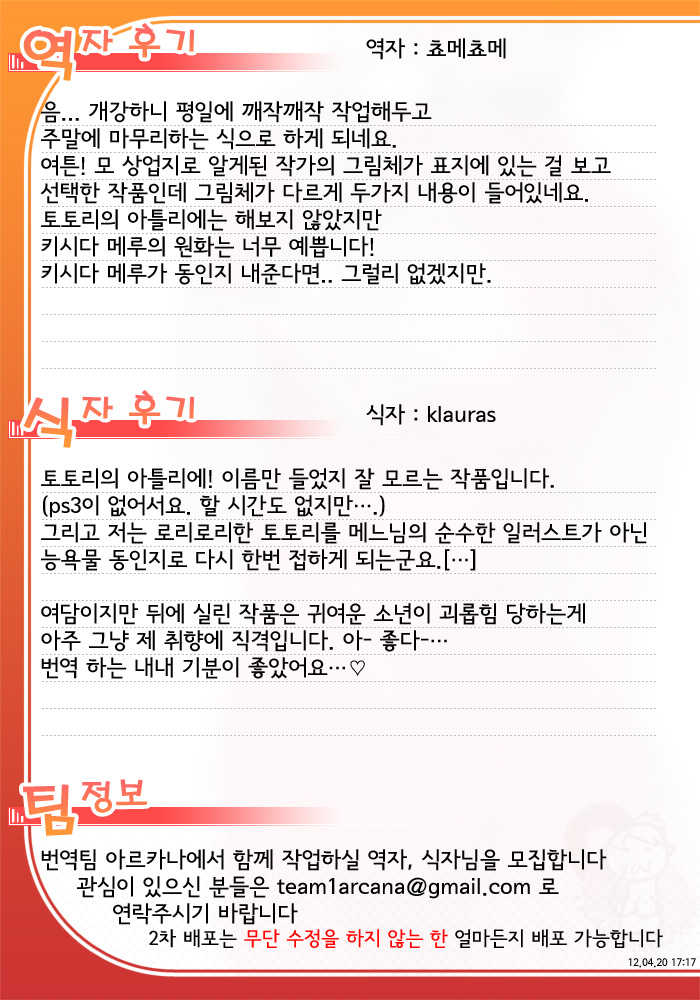 역자 후기
역자 : 쵸메쵸메
음... 개강하니 평일에 깨작깨작 작업해두고
주말에 마무리하는 식으로 하게 되네요.
여튼! 모 상업지로 알게된 작가의 그림체가 표지에 있는 걸 보고
선택한 작품인데 그림체가 다르게 두가지 내용이 들어있네요.
토토리의 아틀리에는 해보지 않았지만
키시다 메루의 원화는 너무 예쁩니다!
키시다 메루가 동인지 내준다면.. 그럴리 없겠지만.
식자 후기
식자 : klauras
토토리의 아틀리에! 이름만 들었지 잘 모르는 작품입니다.
(ps3이 없어서요. 할 시간도 없지만….)
그리고 저는 로리로리한 토토리를 메느님의 순수한 일러스트가 아닌
능욕물 동인지로 다시 한번 접하게 되는군요.[…]
여담이지만 뒤에 실린 작품은 귀여운 소년이 괴롭힘 당하는게
아주 그냥 제 취향에 직격입니다. 아- 좋다-…
번역 하는 내내 기분이 좋았어요…♡
팀 정보
번역팀 아르카나에서 함께 작업하실 역자, 식자님을 모집합니다
관심이 있으신 분들은 team1arcana@gmail.com 로
연락주시기 바랍니다
2차 배포는 무단 수정을 하지 않는 한 얼마든지 배포 가능합니다
12.04.20 17:17